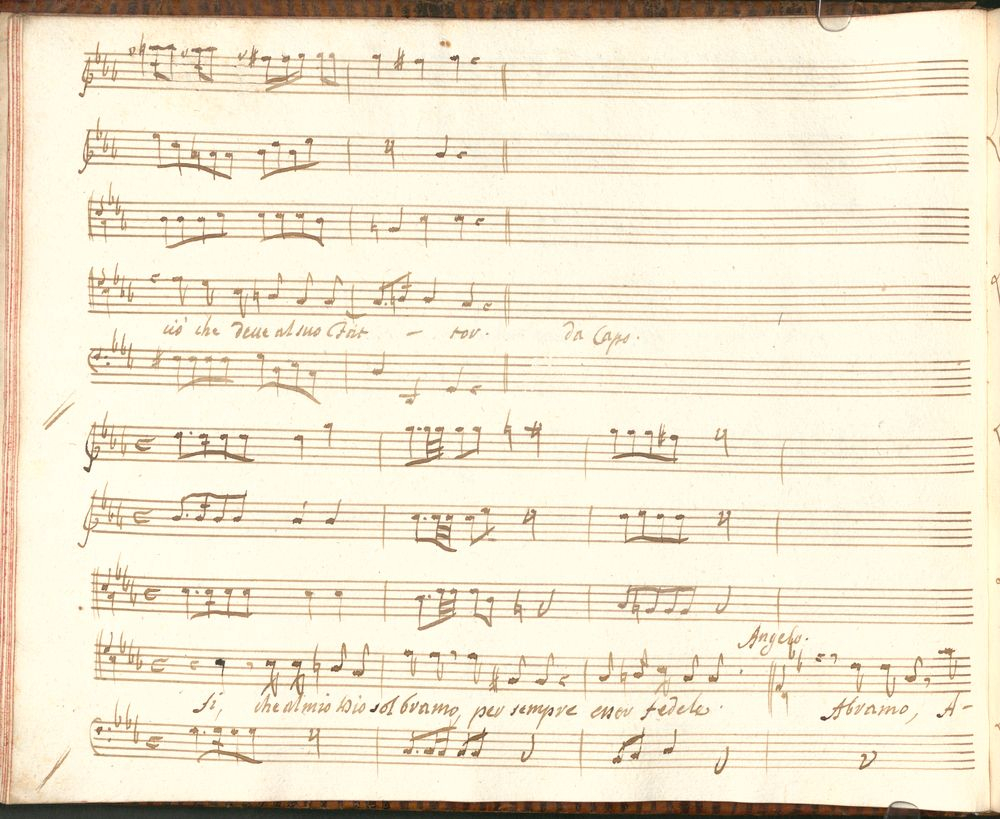 ciò che deve al suo Fat - tor. da Capo.
Angelo.
si, che al mio Dio sol bramo, per sempre esser fedele. Abramo, A-